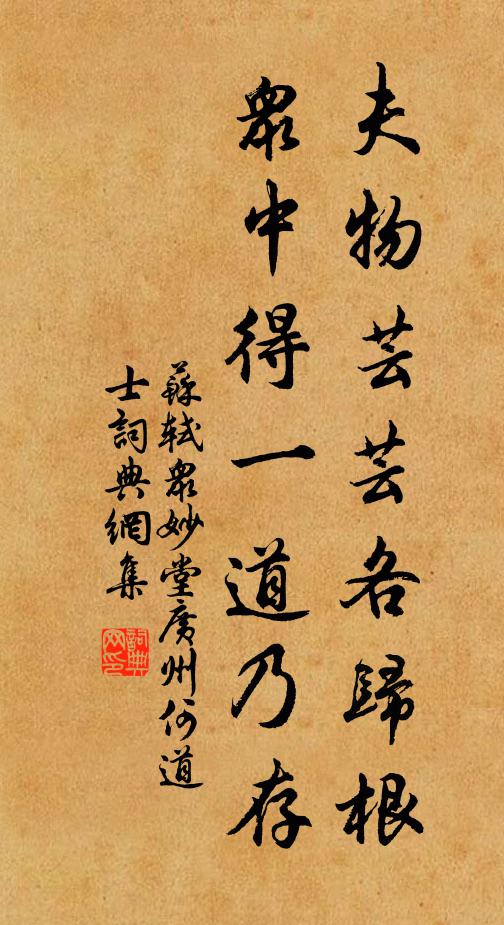 夫物芸芸各歸根
衆中得一道乃存
蘇軾衆妙堂廣州何道
士詞典網集
詞典网印